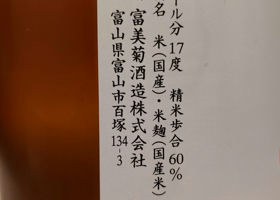 ール分 17度 精米歩合 60%
名 米(国産)・米麹(国産米)
富美菊酒造株式会社
富山県富山市百塚134-3